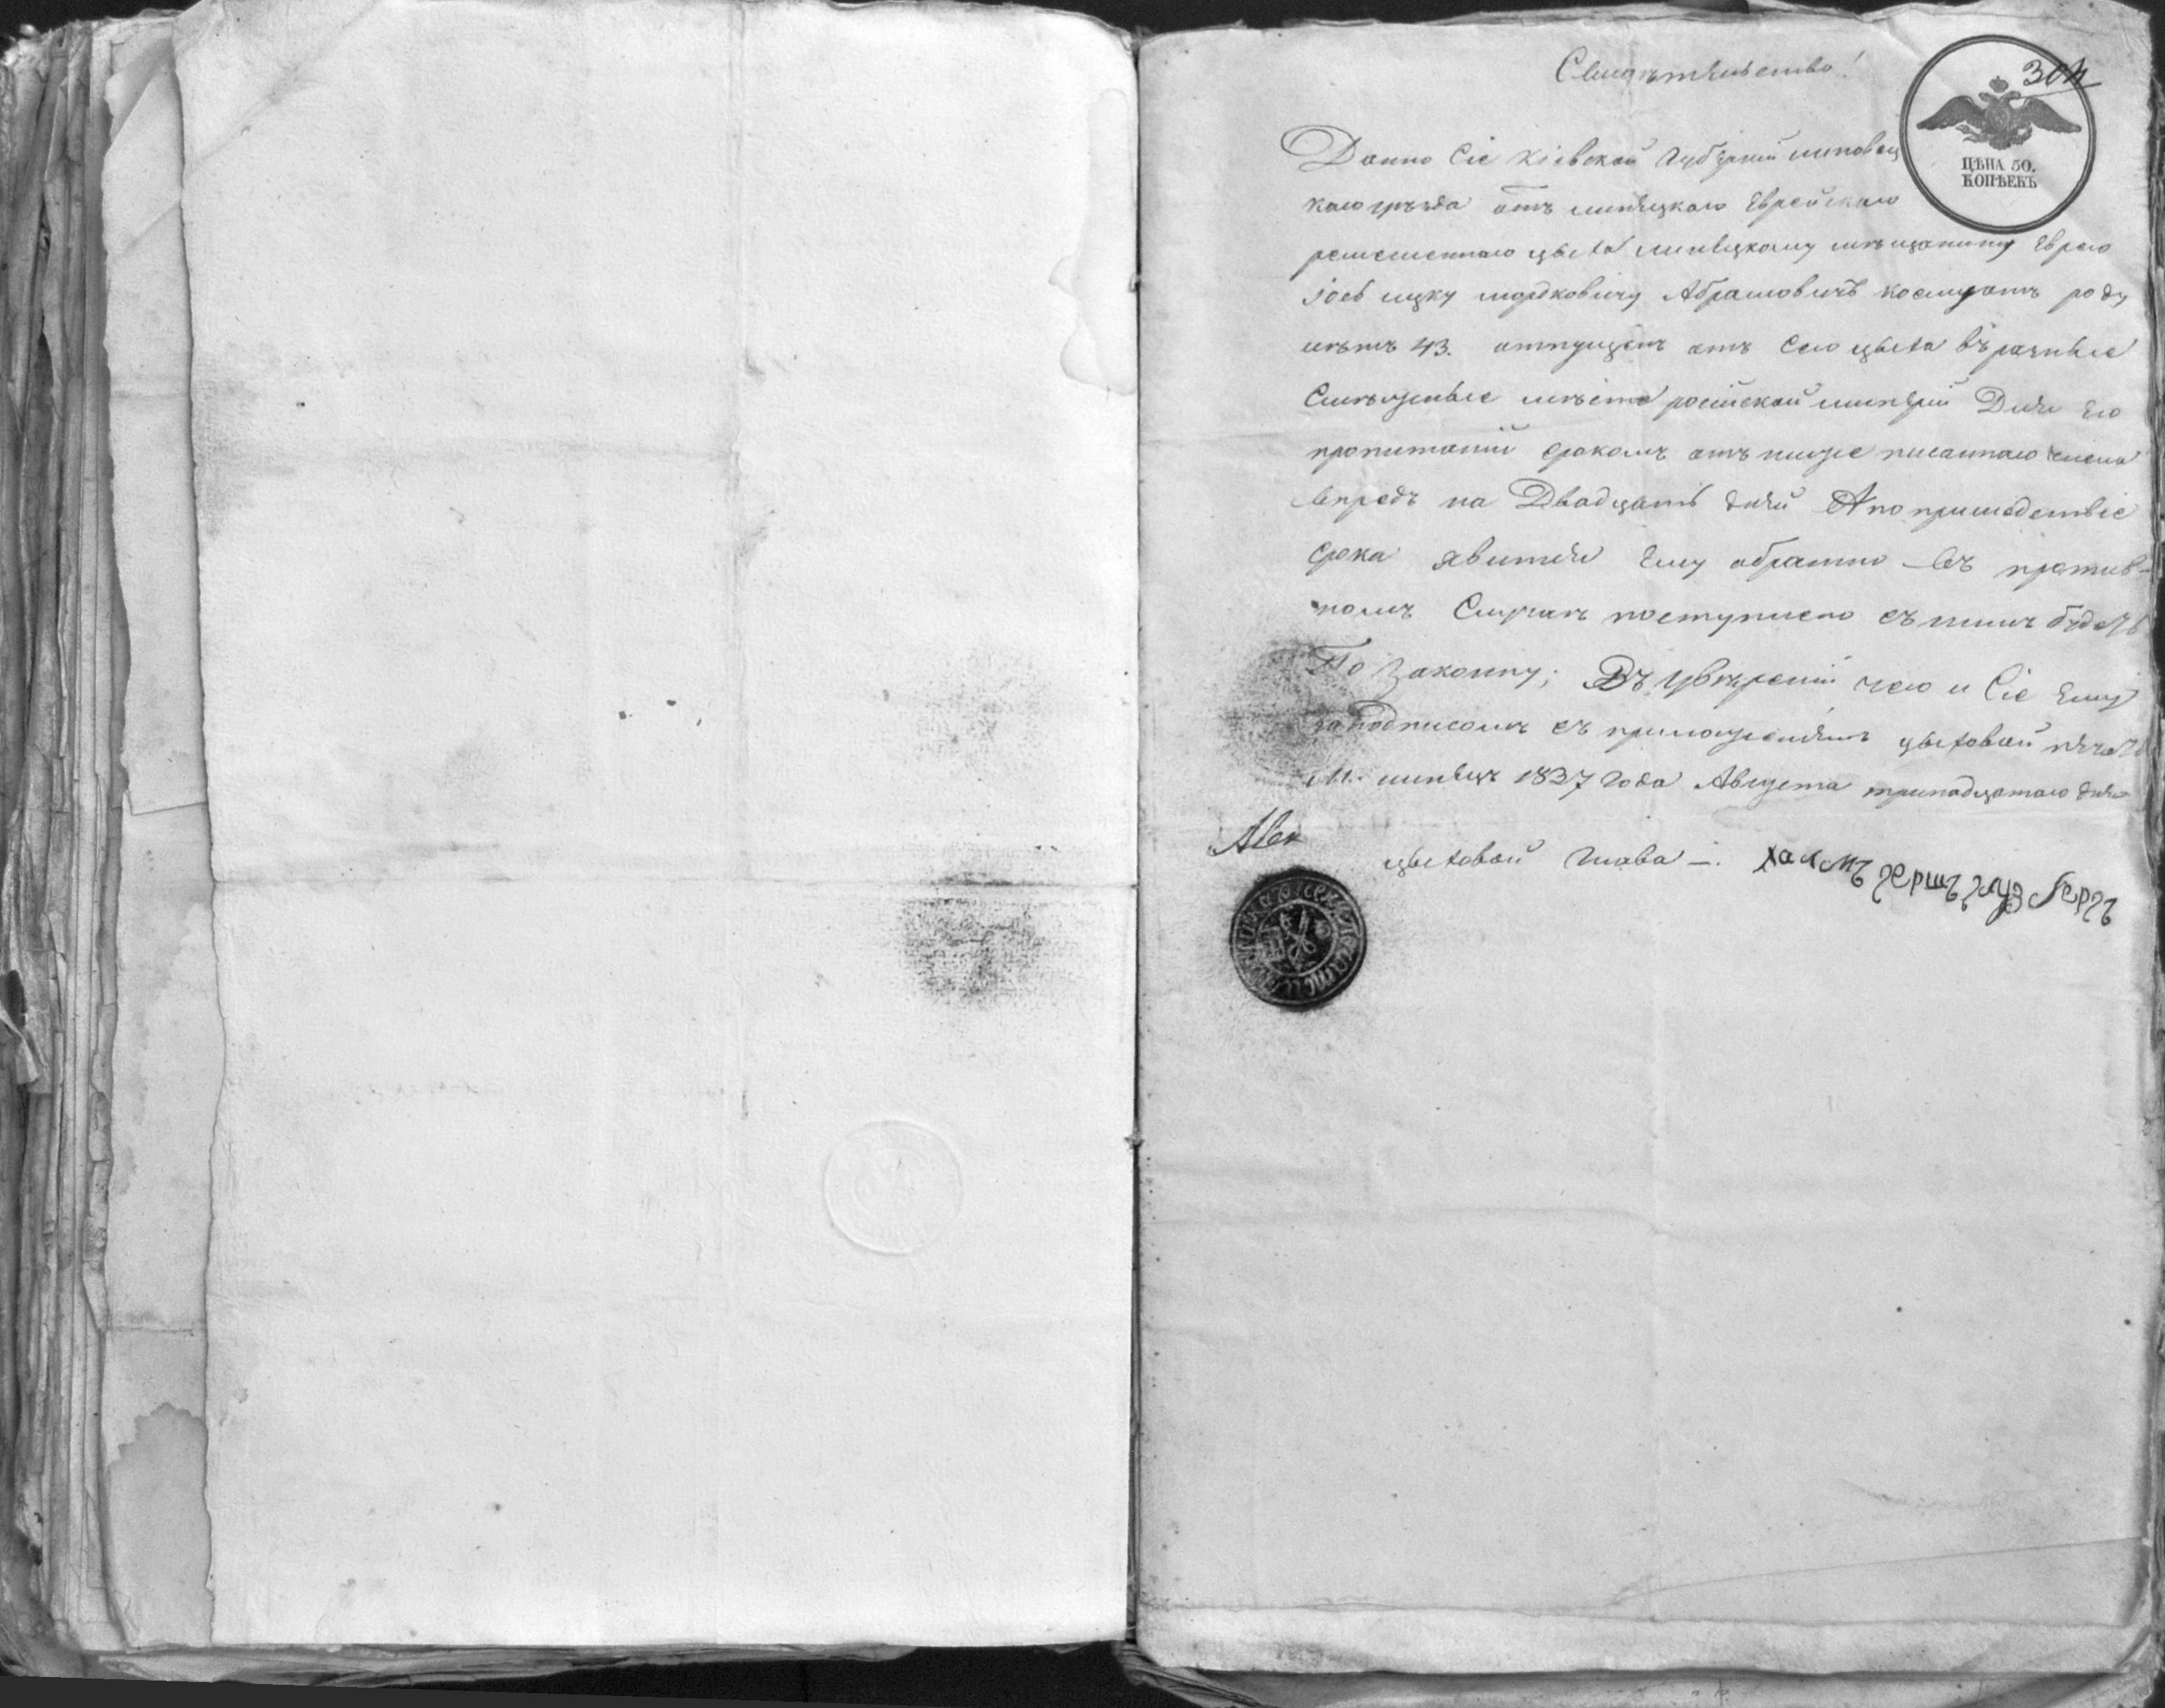 Свидѣтельство!
304
ЦѢНА 50.
КОПѢЕКЪ
Данно Сіе Кіевской Губерніи липовец
кого уѣзда отъ линецкаго Еврейскаго
ремесленнаго цѣха линецкому мѣщанину Еврею
Іось ицку мордковичу Абрамовичъ коему отъ роду
лѣтъ 43. отпущенъ отъ Сего цѣха въ разные
Смѣжные мѣста російской имперіи Для Его
пропитаній срокомъ отъ ниже писаннаго числа
впредъ на Двадцать дней А по прошедствіе
срока явится Ему обратно въ против-
номъ Случаѣ поступлено съ нимъ будетъ
По Закону; Въ Увѣреніи чего и Сіе Ему
за подписомъ съ приложеніемъ цѣховой печати
М. линецъ 1837 Года Августа тринадцатаго дня
цѣховой Глава —. хаимъ гершъ